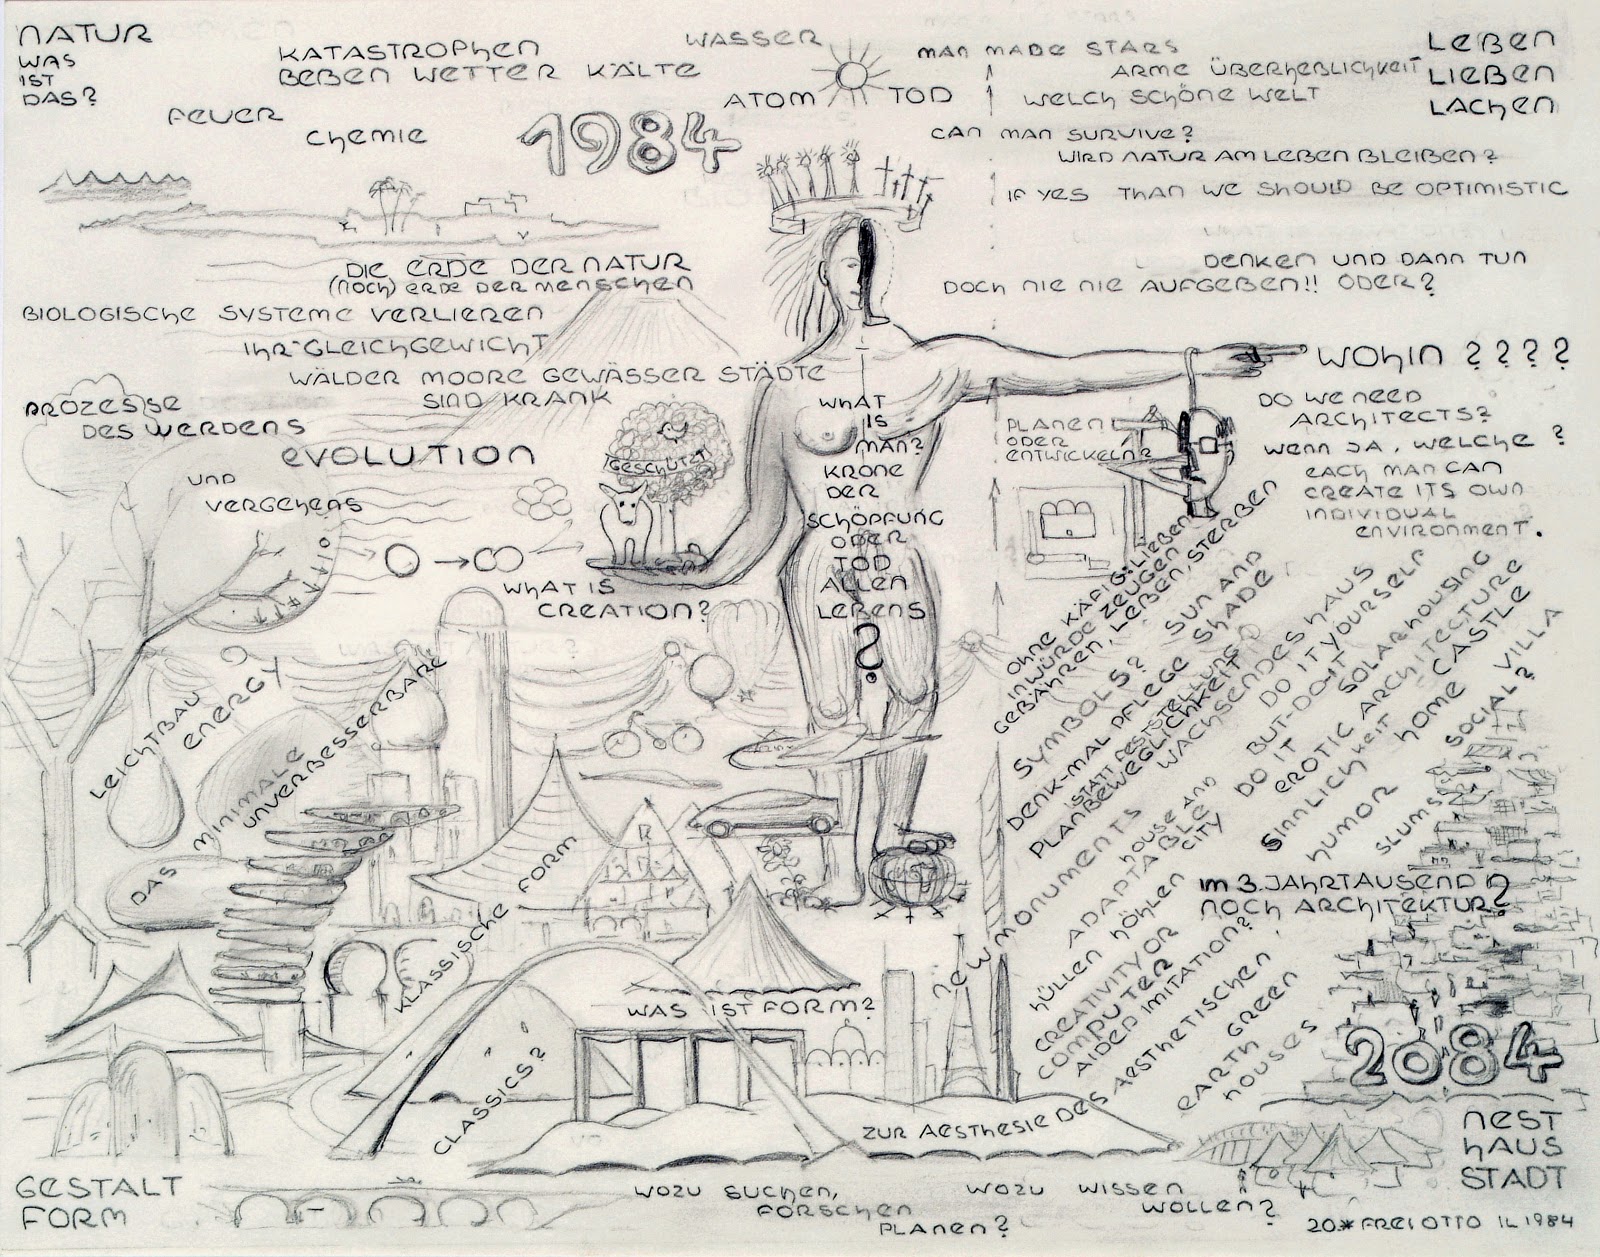 NATUR
WAS
IST
DAS?
KATASTROPHEN
BEBEN WETTER KÄLTE
FEUER
CHEMIE
WASSER
ATOM TOD
1984
MAN MADE STARS
ARME ÜBERHEBLICHKEIT
WELCH SCHÖNE WELT
CAN MAN SURVIVE?
WIRD NATUR AM LEBEN BLEIBEN?
IF YES THAN WE SHOULD BE OPTIMISTIC
LEBEN
LIEBEN
LACHEN
DENKEN UND DANN TUN
DOCH NIE NIE AUFGEBEN!! ODER?
DIE ERDE DER NATUR
(NOCH) ERDE DER MENSCHEN
BIOLOGISCHE SYSTEME VERLIEREN
IHR GLEICHGEWICHT
WÄLDER MOORE GEWÄSSER STÄDTE
SIND KRANK
PROZESSE
DES WERDENS
EVOLUTION
UND
VERGEHENS
GESCHÜTZT
WHAT IS
CREATION?
WHAT
IS
MAN?
KRONE
DER
SCHÖPFUNG
ODER
TOD
ALLEN
LEBENS
?
WOHIN ????
PLANEN
ODER
ENTWICKELN?
DO WE NEED
ARCHITECTS?
WENN JA, WELCHE?
EACH MAN CAN
CREATE ITS OWN
INDIVIDUAL
ENVIRONMENT.
OHNE KÄFIG: LIEBEN
IN WÜRDE ZEUGEN
GEBÄHREN, LEBEN, STERBEN
SYMBOLS?
SUN AND
SHADE
DENK-MAL PFLEGE
STATT FESTSTELLUNG
PLANBEWEGLICHKEIT
WACHSENDES HAUS
DO IT YOURSELF
BUT-DO-IT
DO IT
SOLARHOUSING
EROTIC ARCHITECTURE
SINNLICHKEIT
HOME CASTLE
HUMOR
SOCIAL? VILLA
SLUMS
NEW MONUMENTS
HOUSE AND
ADAPTABLE
CITY
HÜLLEN HÖHLEN
CREATIVITY OR
COMPUTER
AIDED IMITATION?
IM 3. JAHRTAUSEND
NOCH ARCHITEKTUR?
ZUR AESTHESIE DES AESTHETISCHEN
EARTH GREEN
HOUSES
2084
NEST
HAUS
STADT
LEICHTBAU
ENERGY
DAS MINIMALE
UNVERBESSERBARE
KLASSISCHE FORM
CLASSICS?
WAS IST FORM?
GESTALT
FORM
WOZU SUCHEN,
FORSCHEN
PLANEN?
WOZU WISSEN
WOLLEN?
20.* FREI OTTO IL 1984